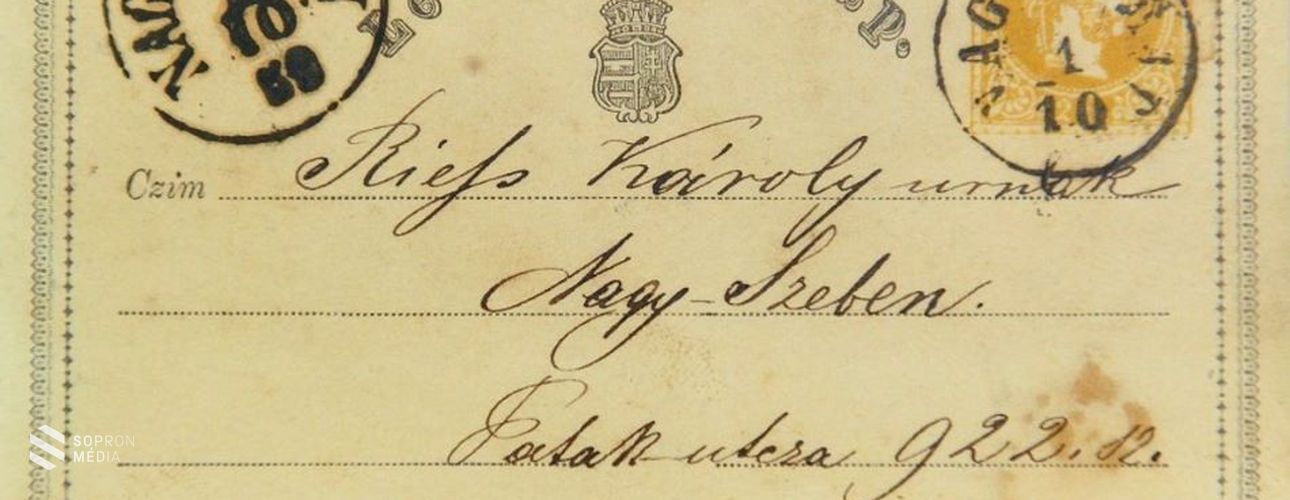 NAG
1
10
Czim Riefs Károly urnak
Nagy-Szeben.
Patak utcza 922. sz.
SOPRON
MÉDIA